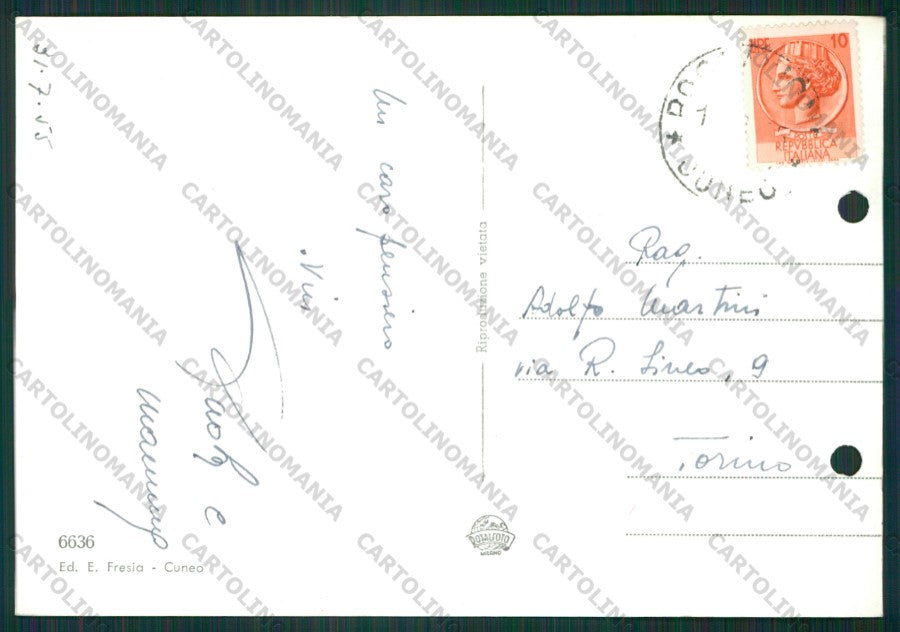 31.7.55
Un caro pensiero
Vin
Paola e
Mammy
6636
Ed. E. Fresia - Cuneo
Riproduzione vietata
MILANO
LIRE 10
POSTE
REPVBBLICA
ITALIANA
CUNEO
Rag.
Adolfo Martini
via R. Lineo, 9
Torino
CARTOLINOMANIA